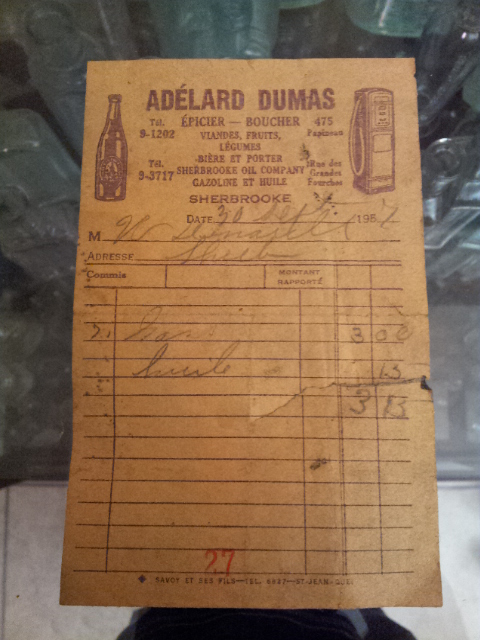 ADÉLARD DUMAS
Tél. ÉPICIER — BOUCHER 475
9-1202 VIANDES, FRUITS, Papineau
LÉGUMES
Tél. BIÈRE ET PORTER 1Rue des
9-3717 SHERBROOKE OIL COMPANY Grandes
GAZOLINE ET HUILE Fourches
SHERBROOKE
DATE 30 Sept 1957
M
ADRESSE Sherb
Commis MONTANT RAPPORTÉ
Gaz 3 00
huile 15
3 15
27
SAVOY ET SES FILS—TEL. 6827—ST-JEAN, QUÉ.